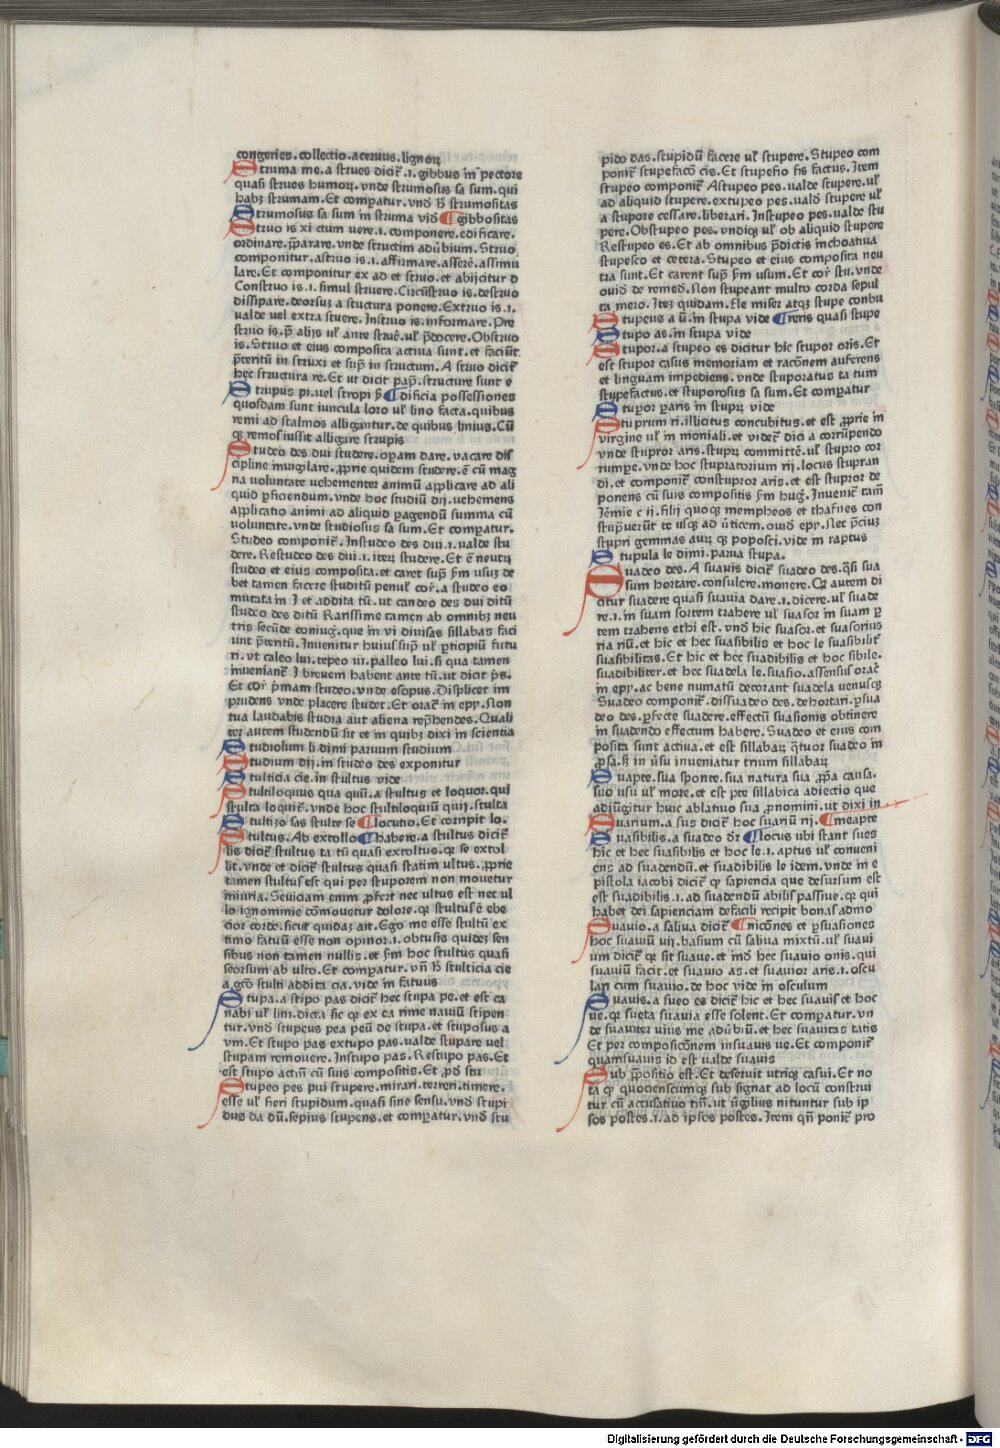 congeries.collectio.aceruus.lignoꝝ
Struma me.a strues dicit᷑.i.gibbus in pectore
quasi strues humoꝝ.vnde strumosus sa sum.qui
habꝫ strumam.Et compatur.vnd̄ h̄ strumositas
Strumosus sa sum in struma vid̄ ¶ gibbositas
Struo is xi ctum uere.i.componere.edificare.
ordinare.p̄parare.vnde structim adūbium.Struo
componitur.astruo is.i.affirmare.asserē.assimu
lare.Et componitur ex ad et struo.et abijcitur d
Construo is.i.simul struere.Circūstruo is.destruo
dissipare.deorsuꝫ a structura ponere.Extruo is.i.
ualde uel extra struere.Instruo is.informare.Pre
struo is.p̄ alijs ul᷑ ante struē.ul᷑ p̄docere.Obstruo
is.Struo et eius composita actiua sunt.et faciūt
p̄teritū in struxi et sup̄ in structum.A struo dicit᷑
hec structura re.Et ut dicit pap̄.structure sunt e
Strupus pi.uel stropi p̄ ¶ dificia possessiones
quosdam sunt uincula loro ul᷑ lino facta.quibus
remi ad stalmos alligantur.de quibus liuius.Cū
qꝫ remos iussit alligare strupis
Studeo des dui studere.oꝑam dare.vacare dis
cipline inuigilare.ꝓprie quidem studere.ē cū mag
na uoluntate uehementer animū applicare ad ali
quid ꝑficiendum.vnde hoc studiū dij.uehemens
applicatio animi ad aliquid ꝑagendū summa cū
uoluntate.vnde studiosus sa sum.Et comꝑatur.
Studeo componit᷑.Instudeo des dui.i.ualde stu
dere.Restudeo des dui.i.iteꝝ studere.Et ē neutꝝ
studeo et eius composita.et caret sup̄ s̄m usuꝫ de
bet tamen facere studitū penul᷑ cor᷑.a studeo eo
mutata in I et addita tū.ut candeo des dui ditū
studeo des ditū Rarissime tamen ab omnibꝫ neu
tris secūde coniug᷑.que in vi diuisas sillabas faci
unt p̄teritū.Inuenitur huius sup̄ ul᷑ ꝑticipiū futu
ri.ut caleo lui.tepeo ui.palleo lui.si qua tamen
inueniant᷑ I breuem habent ante tū.ut dicit p̄s.
Et cor᷑ p̄mam studeo.vnde esopus.Displicet im
prudens vnde placere studet.Et orac᷑ in epp̄.Non
tua laudabis studia aut aliena rep̄hendes.Quali
ter autem studendū sit et in quibꝫ dixi in scientia
Studiolum li dimi paruum studium
Studium dij.in studeo des exponitur
Stulticia cie.in stultus vide
Stultiloquus qua quū.a stultus et loquor.qui
stulta loquit᷑.vnde hoc stultiloquiū quij.stulta
Stultizo sas stulte se ¶ locutio.Et corripit lo.
Stultus.Ab extollo ¶ habere.a stultus dicit᷑
lis dicit᷑ stultus ta tū quasi extoltus.qꝛ se extol
lit.vnde et dicit᷑ stultus quasi statim ultus.ꝓprie
tamen stultus est qui per stuporem non mouetur
iniuria.Seuiciam enim ꝑfert nec ultus est nec ul
lo ignominie cōmouetur dolore.qꝛ stultus ē ebe
cior corde.sicut quidaꝫ ait.Ego me esse stultū ex
timo fatuū esse non opinor.i.obtusis quideꝫ sen
sibus non tamen nullis.et s̄m hoc stultus quasi
seorsum ab ulto.Et comꝑatur.vn̄ h̄ stulticia cie
a gtō stulti addita cia.vide in fatuus
Stupa.a stipo pas dicit᷑ hec stupa pe.et est ca
nabi ul᷑ lini.dicta sic qꝛ ex ea rime nauiū stipen
tur.vnd̄ stupeus pea peū de stupa.et stuposus a
vm.Et stupo pas extupo pas.ualde stupare uel
stupam remouere.Instupo pas.Restupo pas.Et
est stupo actiū cū suis compositis.Et ꝓd̄ stu
Stupeo pes pui stupere.mirari.terreri.timere.
esse ul᷑ fieri stupidum.quasi sine sensu.vnd̄ stupi
dus da dū.sepius stupens.et comꝑatur.vnd̄ stu
pido das.stupidū facere ul᷑ stupere.Stupeo com
ponit᷑ stupefacō cis.Et stupefio fis factus.Item
stupeo componit᷑ Astupeo pes.ualde stupere.ul᷑
ad aliquid stupere.extupeo pes.uald̄ stupere ul᷑
a stupore cessare.liberari.Instupeo pes.ualde stu
pere.Obstupeo pes.vndiqꝫ ul᷑ ob aliquid stupere
Restupeo es.Et ab omnibus p̄dictis inchoatiua
stupesco et cetera.Stupeo et eius composita neu
tra sunt.Et carent sup̄ s̄m usum.Et cor᷑ stu.vnde
ouid̄ de remed̄.Non stupeant multo corda sepul
ta mero.Iteꝫ quidam.Ile miser atqꝫ stupe conbu
Stupeus a ū.in stupa vide ¶ rens quasi stupe
Stupo as.in stupa vide
Stupor.a stupeo es dicitur hic stupor oris.Et
est stupor casus memoriam et racōnem auferens
et linguam impediens.vnde stuporatus ta tum
stupefactus.et stuporosus sa sum.Et comꝑatur
Stupor ꝑaris in stupꝝ vide
Stuprum ri.illicitus concubitus.et est ꝓprie in
virgine ul᷑ in moniali.et videt᷑ dici a corrūpendo
vnde stupror aris.stupꝝ committē.ul᷑ stupro cor
rumpe.vnde hoc stupratorium rij.locus stupran
di.et componit᷑ constupror aris.et est stupror de
ponens cū suis compositis s̄m hug᷑.Inuenit᷑ tam̄
Iēmie c ij.filij quoqꝫ mempheos et thafnes con
stupuerūt te usqꝫ ad ūticem.ouid̄ epp̄.Nec p̄cius
stupri gemmas auꝝ qꝫ poposci.vide in raptus
Stupula le dimi.parua stupa.
Suadeo des.A suauis dicit᷑ suadeo des.q̄si sua
sum hortare.consulere.monere.Qꝛ autem di
citur suadere quasi suauia dare.i.dicere.ul᷑ suade
re.i.in suam sortem trahere ul᷑ suasor in suam ꝑ
tem trahens ethi est.vnd̄ hic suasor.et suasorius
ria riū.et hic et hec suasibilis et hoc le suasibilit᷑
suasibilitas.Et hic et hec suadibilis et hoc sibile.
suadibiliter.et hec suadela le.suasio.assensus orac᷑
in epp̄.ac bene numatū decorant suadela uenusqꝫ
Suadeo componit᷑.dissuadeo des.dehortari.ꝑsua
deo des.ꝑfecte suadere.effectū suasionis obtinere
in suadendo effectum habere.Suadeo et eius com
posita sunt actiua.et est sillabaꝝ q̄tuor suadeo in
ꝓsa.sꝫ in ūsu inueniatur trium sillabaꝝ
Suapte.sua sponte.sua natura sua ꝓpa causa.
suo usu ul᷑ more.et est pte sillabica adiectio que
adiūgitur huic ablatiuo sua ꝓnomini.ut dixi in
Suarium.a sus dicit᷑ hoc suariū rij. ¶ meapte
Suasibilis.a suadeo dr᷑ ¶ locus ubi stant sues
hic et hec suasibilis et hoc le.i.aptus ul᷑ conueni
ens ad suadendū.et suadibilis le idem.vnde in e
pistola iacobi dicit᷑ qꝛ sapiencia que desursum est
est suadibilis.i.ad suadendū abilis passiue.qꝛ qui
habet dei sapienciam defacili recipit bonas admo
Suauio.a saliua dicit᷑ ¶ nicōnes et ꝑsuasiones
hoc suauiū uij.basium cū saliua mixtū.ul᷑ suaui
um dicit᷑ qꝛ sit suaue.et ind̄ hec suauio onis.qui
suauiū facit.et suauio as.et suauior aris.i.oscu
lari cum suauio.de hoc vide in osculum
Suauis.a sueo es dicit᷑ hic et hec suauis et hoc
ue.qꝛ sueta suauia esse solent.Et comꝑatur.vn
de suauiter uius me adūbiū.et hec suauitas tatis
Et per composicōnem insuauis ue.Et componit᷑
quamsuauis id est ualde suauis
Sub p̄positio est.Et deseruit utriqꝫ casui.Et no
ta qꝛ quocienscumqꝫ sub signat ad locū construi
tur cū accusatiuo tm̄.ut ūgilius nituntur sub ip
sos postes.i.ad ipsos postes.Item qn̄ ponit᷑ pro
Digitalisierung gefördert durch die Deutsche Forschungsgemeinschaft - DFG